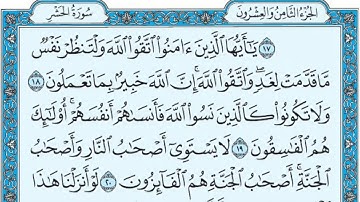 الجزء الثامن والعشرون سورة الحشر
١٧ يَٰٓأَيُّهَا ٱلَّذِينَ ءَامَنُوا۟ ٱتَّقُوا۟ ٱللَّهَ وَلْتَنظُرْ نَفْسٌ
مَّا قَدَّمَتْ لِغَدٍ وَٱتَّقُوا۟ ٱللَّهَ إِنَّ ٱللَّهَ خَبِيرٌۢ بِمَا تَعْمَلُونَ ١٨
وَلَا تَكُونُوا۟ كَٱلَّذِينَ نَسُوا۟ ٱللَّهَ فَأَنسَىٰهُمْ أَنفُسَهُمْ أُو۟لَٰٓئِكَ
هُمُ ٱلْفَٰسِقُونَ ١٩ لَا يَسْتَوِىٓ أَصْحَٰبُ ٱلنَّارِ وَأَصْحَٰبُ
ٱلْجَنَّةِ أَصْحَٰبُ ٱلْجَنَّةِ هُمُ ٱلْفَآئِزُونَ ٢٠ لَوْ أَنزَلْنَا هَٰذَا